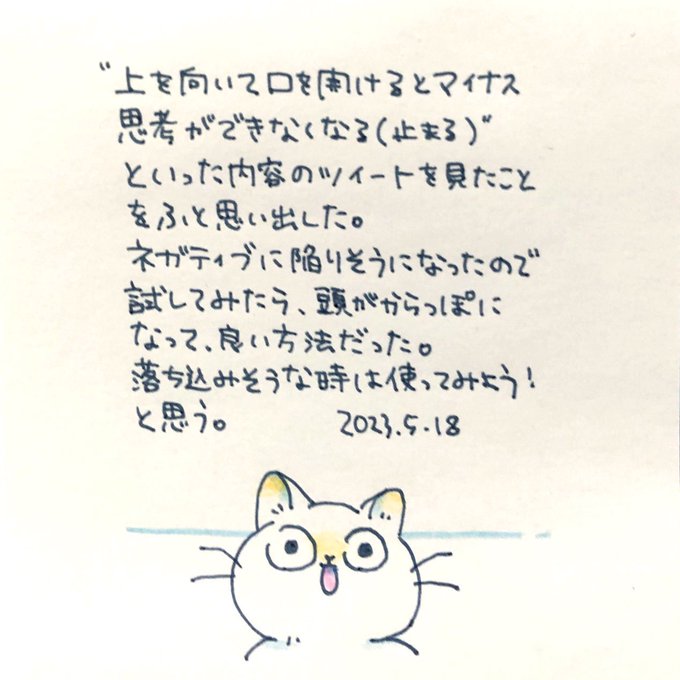 "上を向いて口を開けるとマイナス
思考ができなくなる(止まる)"
といった内容のツイートを見たこと
をふと思い出した。
ネガティブに陥りそうになったので
試してみたら、頭がからっぽに
なって、良い方法だった。
落ち込みそうな時は使ってみよう!
と思う。 2023.5.18